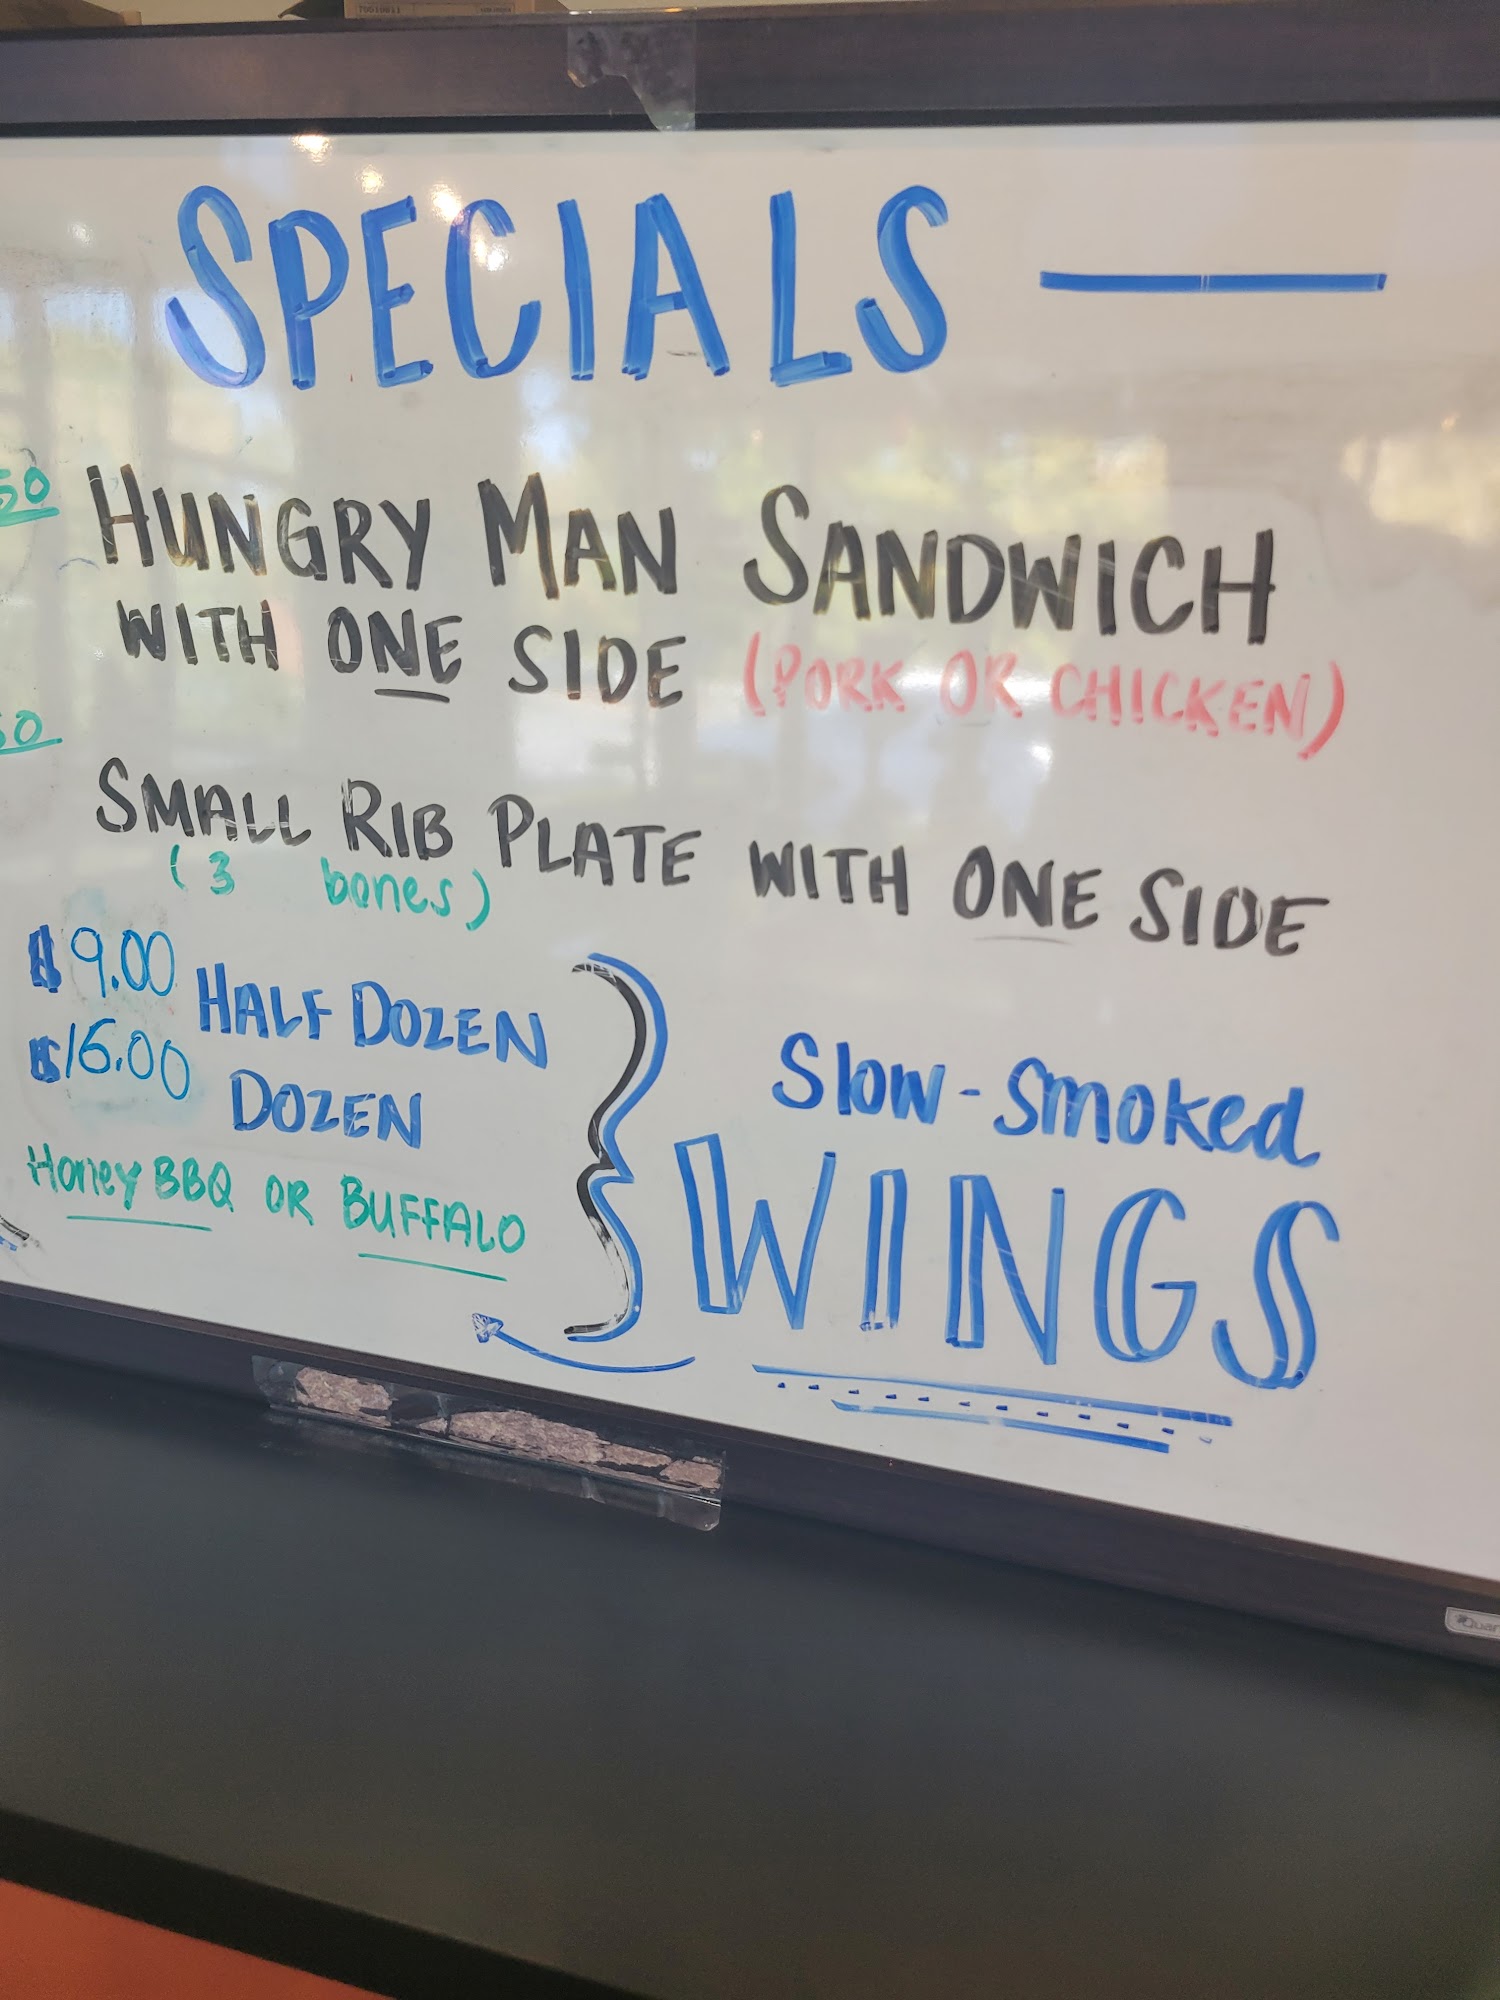 SPECIALS —
50 HUNGRY MAN SANDWICH
WITH ONE SIDE (PORK OR CHICKEN)
50
SMALL RIB PLATE WITH ONE SIDE
(3 bones)
$9.00 HALF DOZEN
$16.00 DOZEN
Honey BBQ OR BUFFALO
Slow-Smoked
WINGS